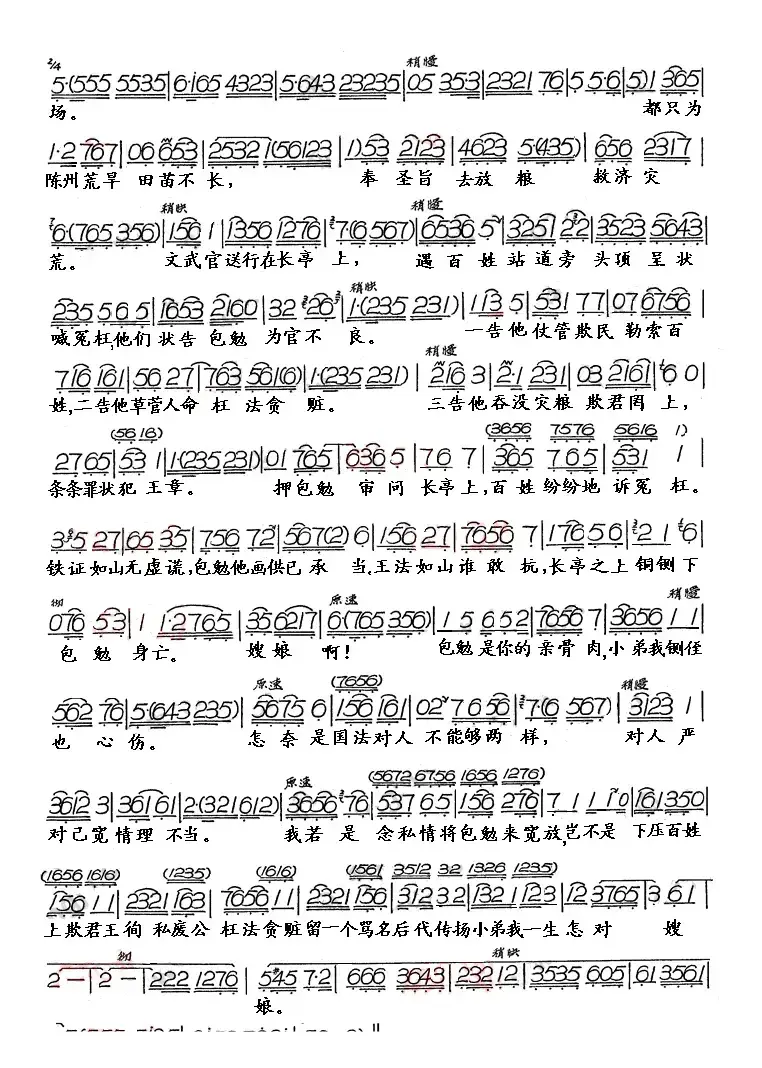 2/4
稍慢
5·(555 5535|6·165 4323|5·643 23235|05 35·3|2321 76|5 5·6|5)1 3665|
场。 都只为
1·2 767|06 653|2532 1(56123|1)53 2123|4623 5(435)|656 2317|
陈州荒旱 田苗不长， 奉 圣旨 去放 粮 救济 灾
稍快 稍慢
6·(765 356)|156 1|1356 1276|7(6 567)|6536 5|3251 22|3523 5643|
荒。 文武官送行在长亭 上， 遇 百 姓 站 道 旁 头顶 呈 状
稍快
235 5 6 5|1653 2160|32 26|1·(235 231)|113 5|531 77|07 6756|
喊冤枉,他们 状告 包勉 为官 不 良。 一告他 仗管 欺民 勒索百
稍慢
716 161|56 27|763 561(6)|1·(235 231)|216 3|2·1 231|03 2161|6 0|
姓,二告他草菅人命 枉 法 贪 赃。 三告他吞没灾粮 欺君罔 上，
(5616) (3656 7576 5616 1)
2765|531 1|1·(235 231)|01 765|636 5|7 6 7|365 765|531 1|
条条罪状犯 王章。 押包勉 审 问 长亭上,百姓纷纷地 诉冤 枉。
35 27|65 35|756 72|567(2) 6|156 27|7656 7|176 5 6|2 1 6|
铁证如山无虚谎,包勉他画供已 承 当.王法如山谁 敢 抗,长亭之上铜铡下
彻 原速 稍慢
076 53|1 1·2765|356217|6(765 356)|1 5 652|7656 7|3656 11|
包 勉 身亡。 嫂 娘 啊！ 包勉是你的 亲骨 肉,小弟我铡侄
原速 (7656) 稍慢
562 76|5(643 235)|5675 6|156 161|02 7 6 56|7(6 567)|3123 1|
也 心 伤。 怎 奈 是国法对人 不能够两 样， 对人 严
原速 (5672 6756 1656 1276)
3612 3|36161|2·(321612)|3656 76|537 65|156 276|7 1|11 0|161350|
对己宽 情理 不当。 我若 是 念私情将包勉来宽放,岂不是 下压百姓
(1656 1616) (1235) (1616) (1561 3512 32 1326 1235)
156 11|2321 163|7656 11|2321 156|312 32|132 123|12 3765|3 61|
上欺君王徇 私废公 枉法贪赃留一个骂名后代传扬小弟我一生 怎 对 嫂
彻 稍快
2 —|2 —|222 1276|545 7·2|666 3643|232 12|3535 605|61 3561|
娘。